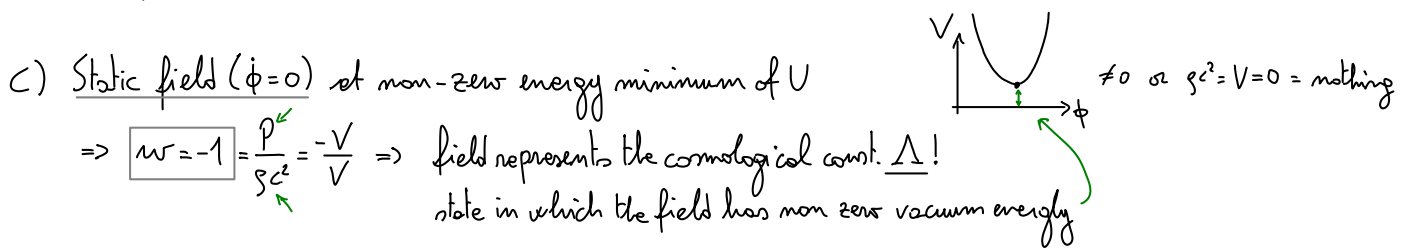 c) Static field (ϕ̇=0) at non-zero energy minimum of U
V
ϕ
≠0 or ρc²=V=0 = nothing
=> w=-1 = P/ρc² = -V/V => field represents the cosmological const. Λ!
state in which the field has non zero vacuum energly